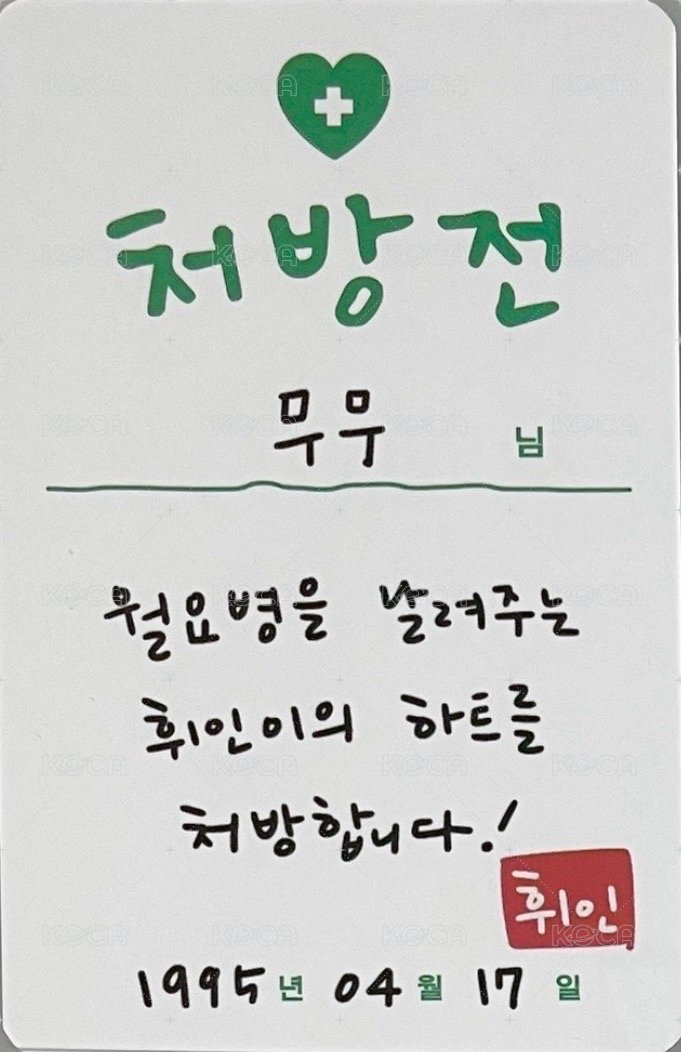 처방전
무무 님
월요병을 날려주는
휘인이의 하트를
처방합니다!
휘인
1995년 04월 17일
KOCA